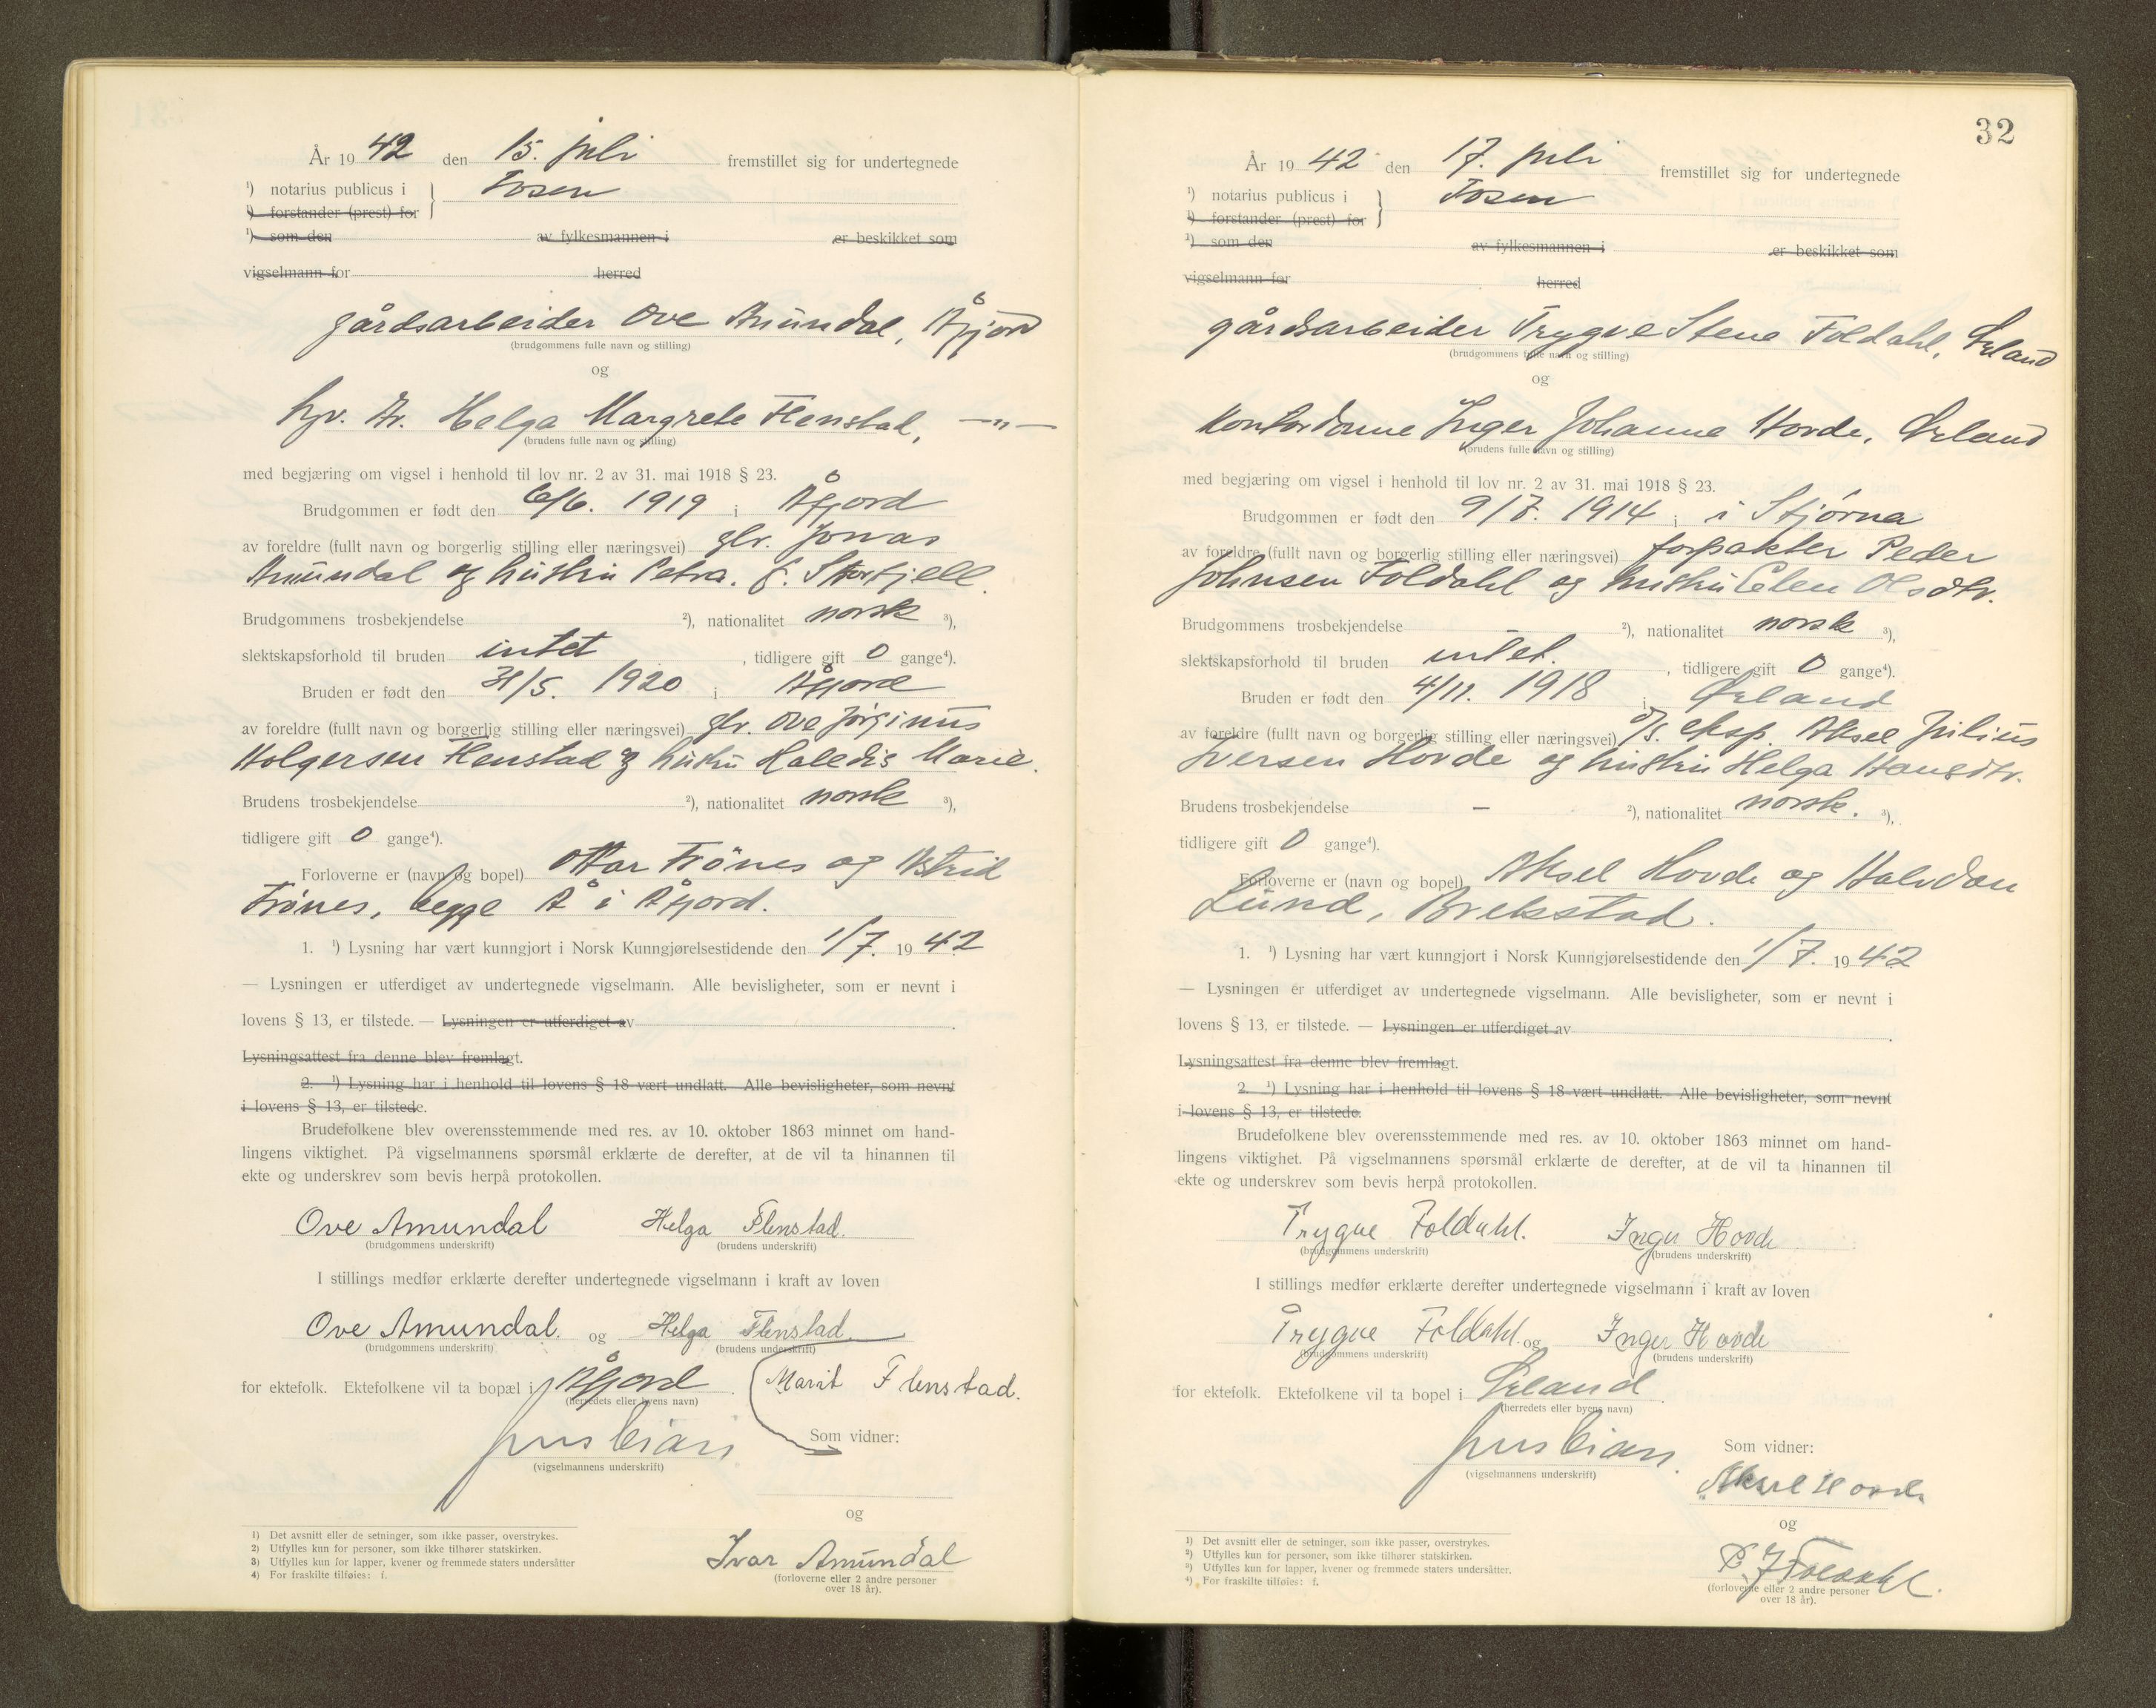 År 19 42 den 15. juli fremstillet sig for undertegnede
¹) notarius publicus i } Fosen
¹) forstander (prest) for
¹) som den av fylkesmannen i er beskikket som
vigselmann for herred
gårdsarbeider Ove Amundal, Åfjord
(brudgommens fulle navn og stilling)
og
hjv. dr. Helga Margrete Flenstad, —"—
(brudens fulle navn og stilling)
med begjæring om vigsel i henhold til lov nr. 2 av 31. mai 1918 § 23.
Brudgommen er født den 6/6. 1919 i Åfjord
av foreldre (fullt navn og borgerlig stilling eller næringsvei) gbr. Jonas
Amundal og hustru Petra. f. Storfjell.
Brudgommens trosbekjendelse ²), nationalitet norsk ³),
slektskapsforhold til bruden intet , tidligere gift 0 gange⁴).
Bruden er født den 31/5. 1920 i Åfjord
av foreldre (fullt navn og borgerlig stilling eller næringsvei) gbr. Ove Jørginus
Holgersen Flenstad og hustru Halldis Marie.
Brudens trosbekjendelse ²), nationalitet norsk ³),
tidligere gift 0 gange⁴).
Forloverne er (navn og bopel) Ottar Frönes og Astrid
Frönes, begge Å i Åfjord.
1. ¹) Lysning har vært kunngjort i Norsk Kunngjørelsestidende den 1/7. 19 42
— Lysningen er utferdiget av undertegnede vigselmann. Alle bevisligheter, som er nevnt i
lovens § 13, er tilstede. — Lysningen er utferdiget av .
Lysningsattest fra denne blev fremlagt.
2. ¹) Lysning har i henhold til lovens § 18 vært undlatt. Alle bevisligheter, som nevnt
i lovens § 13, er tilstede.
Brudefolkene blev overensstemmende med res. av 10. oktober 1863 minnet om hand-
lingens viktighet. På vigselmannens spørsmål erklærte de derefter, at de vil ta hinannen til
ekte og underskrev som bevis herpå protokollen.
Ove Amundal Helga Flenstad.
(brudgommens underskrift) (brudens underskrift)
I stillings medfør erklærte derefter undertegnede vigselmann i kraft av loven
Ove Amundal. og Helga Flenstad
(brudgommens underskrift) (brudens underskrift)
for ektefolk. Ektefolkene vil ta bopæl i Åfjord . Marit Flenstad.
(herredets eller byens navn)
Som vidner:
(vigselmannens underskrift)
og
Ivar Amundal
(forloverne eller 2 andre personer
over 18 år).
1) Det avsnitt eller de setninger, som ikke passer, overstrykes.
2) Utfylles kun for personer, som ikke tilhører statskirken.
3) Utfylles kun for lapper, kvener og fremmede staters undersåtter
4) For fraskilte tilføies: f.
32
År 19 42 den 17. juli fremstillet sig for undertegnede
¹) notarius publicus i } Fosen
¹) forstander (prest) for
¹) som den av fylkesmannen i er beskikket som
vigselmann for herred
gårdsarbeider Trygve Stene Foldahl, Ørland
(brudgommens fulle navn og stilling)
og
Kontordame Inger Johanne Hovde, Ørland
(brudens fulle navn og stilling)
med begjæring om vigsel i henhold til lov nr. 2 av 31. mai 1918 § 23.
Brudgommen er født den 9/7. 1914 i i Stjörna
av foreldre (fullt navn og borgerlig stilling eller næringsvei) forpakter Peder
Johnsen Foldahl og hustru Elen Olsdtr.
Brudgommens trosbekjendelse ²), nationalitet norsk ³),
slektskapsforhold til bruden intet. , tidligere gift 0 gange⁴).
Bruden er født den 4/11. 1918 i Ørland
av foreldre (fullt navn og borgerlig stilling eller næringsvei) d/s. eksp. Aksel Julius
Iversen Hovde og hustru Helga Hansdtr.
Brudens trosbekjendelse – ²), nationalitet norsk. ³),
tidligere gift 0 gange⁴).
Forloverne er (navn og bopel) Aksel Hovde og Halvdan
Lund, Brekstad.
1. ¹) Lysning har vært kunngjort i Norsk Kunngjørelsestidende den 1/7. 19 42
— Lysningen er utferdiget av undertegnede vigselmann. Alle bevisligheter, som er nevnt i
lovens § 13, er tilstede. — Lysningen er utferdiget av .
Lysningsattest fra denne blev fremlagt.
2. ¹) Lysning har i henhold til lovens § 18 vært undlatt. Alle bevisligheter, som nevnt
i lovens § 13, er tilstede.
Brudefolkene blev overensstemmende med res. av 10. oktober 1863 minnet om hand-
lingens viktighet. På vigselmannens spørsmål erklærte de derefter, at de vil ta hinannen til
ekte og underskrev som bevis herpå protokollen.
Trygve Foldahl. Inger Hovde
(brudgommens underskrift) (brudens underskrift)
I stillings medfør erklærte derefter undertegnede vigselmann i kraft av loven
Trygve Foldahl. og Inger Hovde
(brudgommens underskrift) (brudens underskrift)
for ektefolk. Ektefolkene vil ta bopel i Ørland .
(herredets eller byens navn)
Som vidner:
(vigselmannens underskrift)
Aksel Hovde
og
P. J. Foldahl.
(forloverne eller 2 andre personer
over 18 år).
¹) Det avsnitt eller de setninger, som ikke passer, overstrykes.
²) Utfylles kun for personer, som ikke tilhører statskirken.
³) Utfylles kun for lapper, kvener og fremmede staters undersåtter.
⁴) For fraskilte tilføies: f.